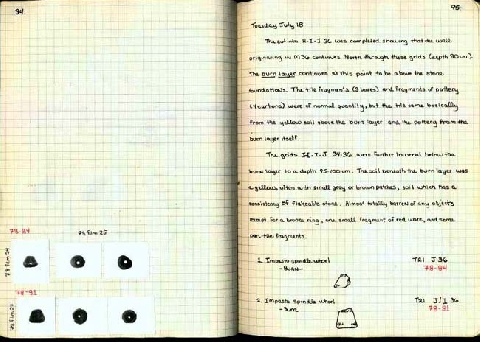 94
78-84
78 Film 25
78-91
95
Tuesday July 18
The
H-I-J 36 was completed showing that the wall
originating in
36 continues North through these grids (depth
The burn layer continues at this point to be above the stone
foundations. The tile fragments (2 boxes) and fragments of pottery
were of normal quantity, but the tile came basically
from the yellow soil above the burn layer and the pottery from the
burn layer itself.
The grids
34-36 were further lowered below the
burn layer to a depth
The soil beneath the burn layer was
a yellow ochre with small grey or brown patches, soil which has a
consistency of flakeable stone. Almost totally barren of any objects
except for a bronze ring, one small fragment of
ware, and some
tile fragments.
1. Impasto spindle whorl
TR: J 36
78-84
2. Impasto spindle whorl
TR: J/I 36
78-91